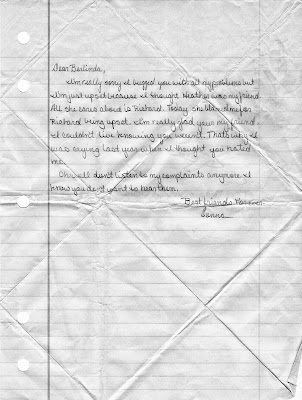 Dear Berlinda,
I'm really sorry I bugged you with all my problems but
I'm just upset because I thought Heather was my friend.
All she cares about is Richard. Today she blamed me for
Richard being upset. I'm really glad your my friend
I couldn't live knowing you weren't. That's why I
was crying last year when I thought you hated
me.
Oh well don't listen to my complaints anymore I
know you don't want to hear them.
Best friends Forever